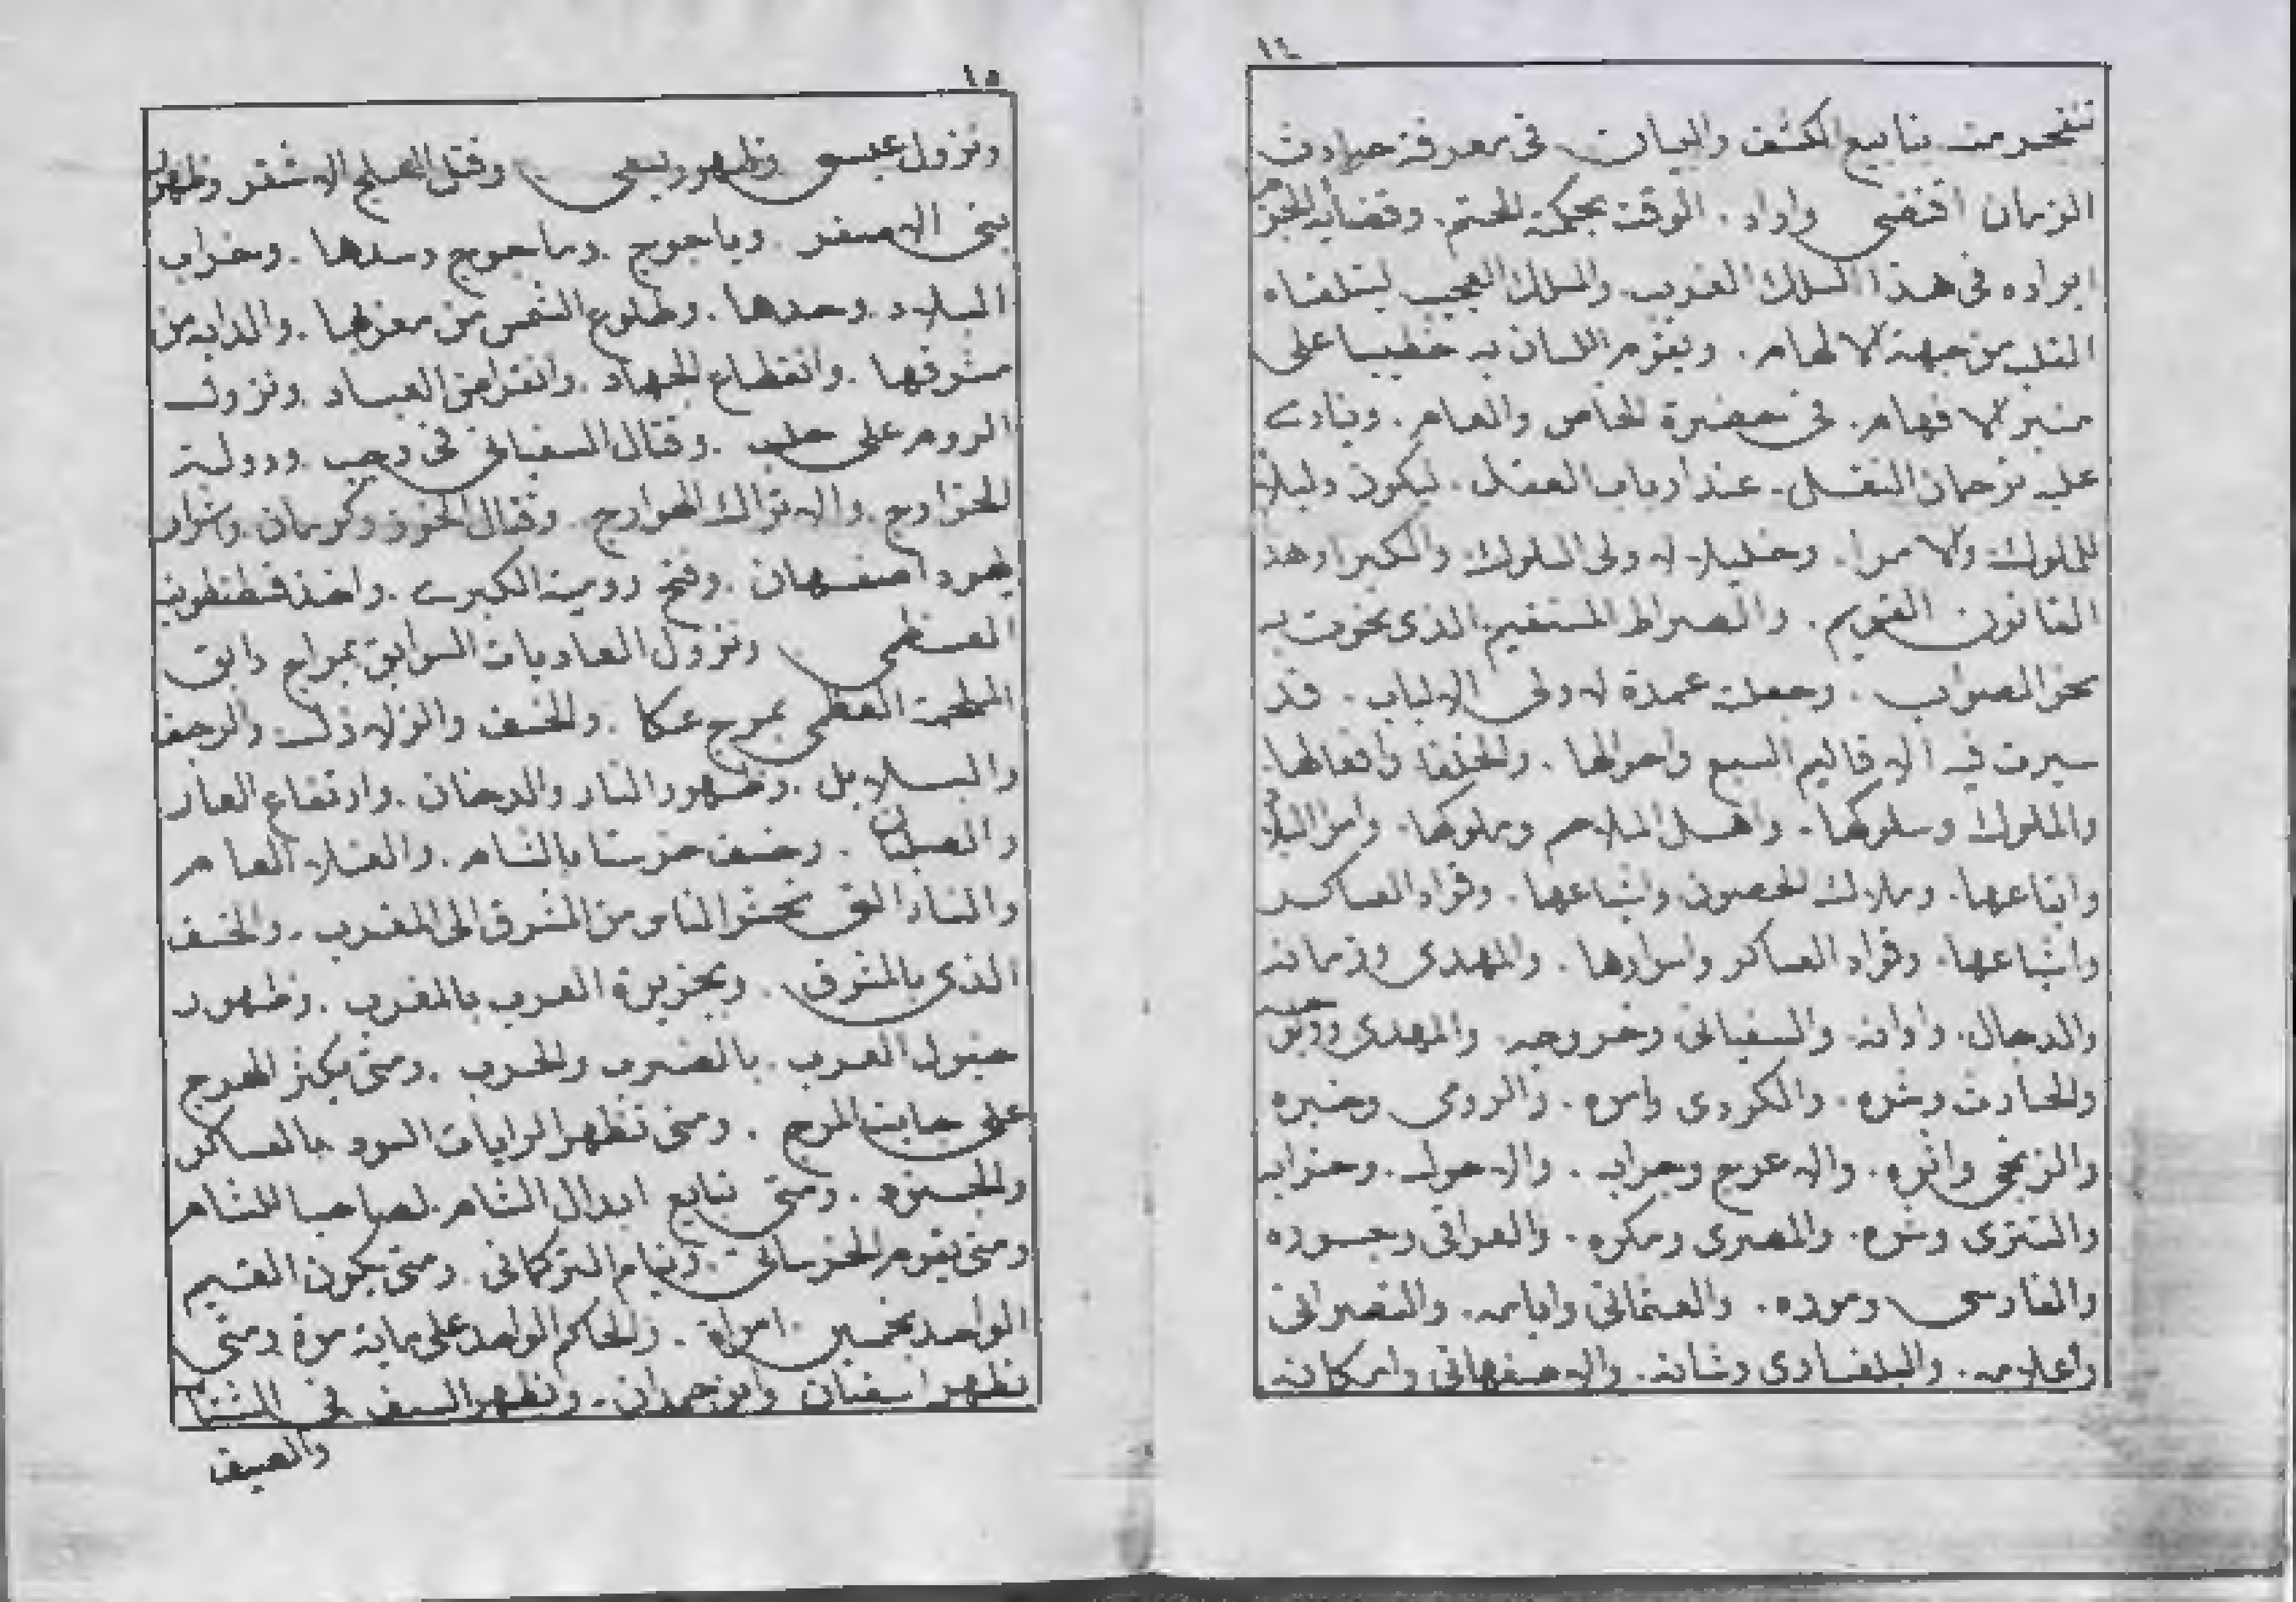 ١٤
تتفجر منه ينابيع الكشف والبيان في معرفة حوادث
الزمان اقتضى واراد . الوقت بحكمة الحتم . وقضايا الجزم
ايراده في هذا السلك الغريب . والملك العجيب ليتلقاه
القلب من جهة الالهام . ويقوم اللسان به خطيبا على
منبر الافهام . في حضرة الخاص والعام . وينادى
عليه ترجمان النقل . عند ارباب العقل . ليكون دليلا
للملوك والامرا . وخليلا لاولى السلوك والكبرا وهذ
القانون القويم . والصراط المستقيم . الذى نحوت به
نحو الصواب . وجعلته عمدة لاولى الالباب . قد
سيرت فيه الاقاليم السبع واحوالها . والخلفا وافعالها
والملوك وسلوكها . واهل الملاحم وملوكها . وامرا البلاد
واتباعها . وملاك الحصون واشياعها . وقواد العساكر
واشياعها . وقواد العساكر واسوارها . والمهدى وزمانه
والدجال . واوانه . والسفيانى وخروجه . والمهدى
والحارث وشره . والكردى وامره . والرومى وخبره
والزنجى واثره . والاعرج وجرابه . والاحول . وخرابه
والتترى وشره . والمصرى ومكره . والعراقى وجسوره
والفارسى وموره . والعثمانى وايامه . والنصرانى
واعلامه . والبلغارى وشانه . والاصفهانى وامكانه
١٥
ونزول عيسى وظهور يحيى وقتل العلج الاشقر وظهور
بنى الاصفر . وياجوج . وماجوج وسدها . وخراب
البلاد . وحدها . وطلوع الشمس من مغربها . والدابه من
مشرقها . وانقطاع الجهاد . وانقراض العباد . ونزول
الروم على حلب . وقتال السفيانى فى رجب . ودولة
الخوارج . والاتراك الهوارج . وقتال الخوز وكرمان .
يهود اصفهان . وفتح رومية الكبرى . واخذ قسطنطونيه
العظمى ونزول العاديات السوابق بمراج دابق
الملحمة العظمى بمرج عكا . والخسف والزلازل . والرجف
والبلابل . وظهور النار والدخان . وارتفاع العار
والصلبان . وخسف حرستا بالشام . والغلاء العام
والنار التى تحشر الناس من المشرق الى المغرب . والخسف
الذى بالمشرق . وبجزيرة العرب بالمغرب . وظهور
خيول العرب . بالضرب والحرب . ومتى يكثر الهرج
على جانب المرج . ومتى تظهر الرايات السود بالعساكر
والجنود . ومتى تبايع ابدال الشام . لصاحبا للشام
ومتى يقوم الخرسانى . وقيام التركمانى . ومتى يكون القيم
الواحد بخمسين . امراة . والحاكم الواحد على ماية مرة ومتى
تظهر اسفنان وابو حمدان . وتظهر السيف فى الشتا
والصيف